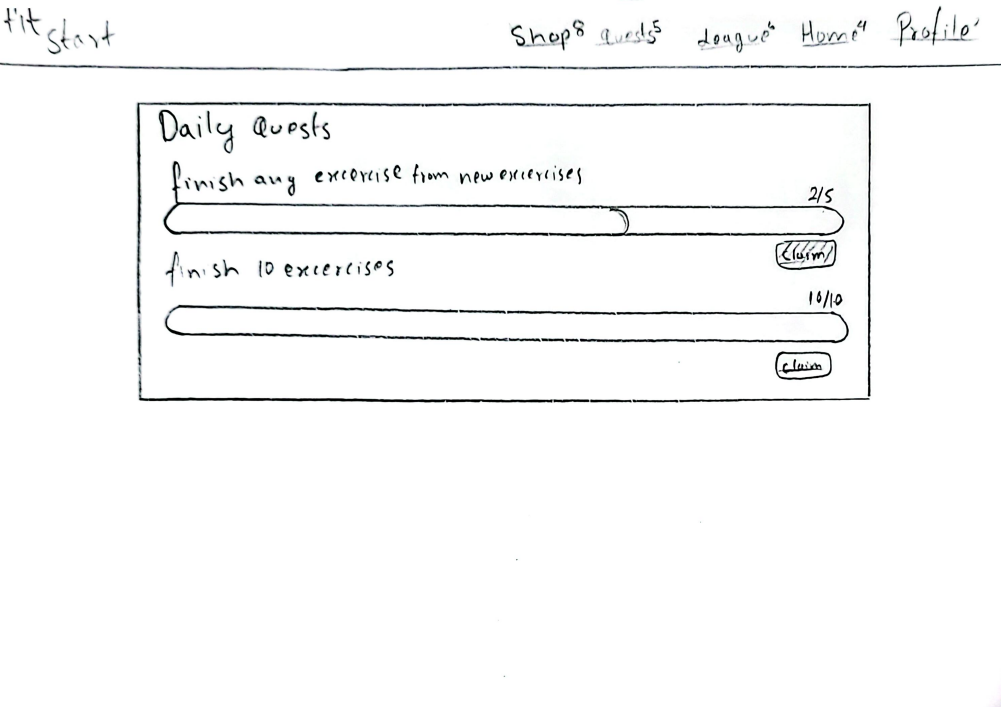 fit Start
Shop⁸ Quests⁵ League⁶ Home⁴ Profile'
Daily Quests
finish any excercise from new excercises
2/5
Claim
finish 10 excercises
10/10
claim